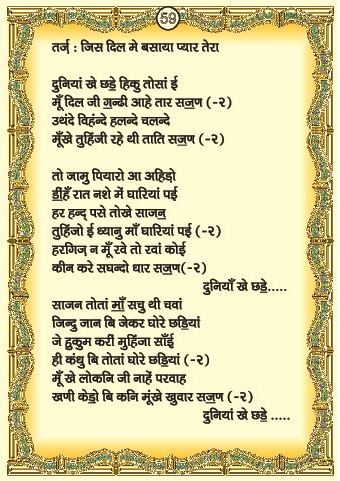 59
तर्ज़ : जिस दिल मे बसाया प्यार तेरा
दुनियां खे छॾे हिकु तोसां ई
मूँ दिल जी ॻन्ढी आहे तार सॼण (-२)
उथंदे विहंन्दे हलन्दे चलन्दे
मूँखे तुहिंजी रहे थी ताति सॼण (-२)
तो जामु पियारो आ अहिड़ो
ॾींहँ रात नशे में घारियां पई
हर हन्द पसे तोखे साजन
तुहिंजो ई ध्यानु माँ घारियां पई (-२)
हरगिज़ न मूँ रवे तो रवां कोई
कीन करे सघन्दो धार सॼण(-२)
दुनियाँ खे छॾे.....
साजन तोतां माँ सचु थी चवां
जिन्दु जान बि जेकर घोरे छॾियां
जे हुकुम करीं मुहिंजा साँई
ही कंधु बि तोतां घोरे छॾियां (-२)
मूँ खे लोकनि जी नाहें परवाह
खणी केॾो बि कनि मूंखे खुवार सॼण (-२)
दुनियां खे छॾे .....